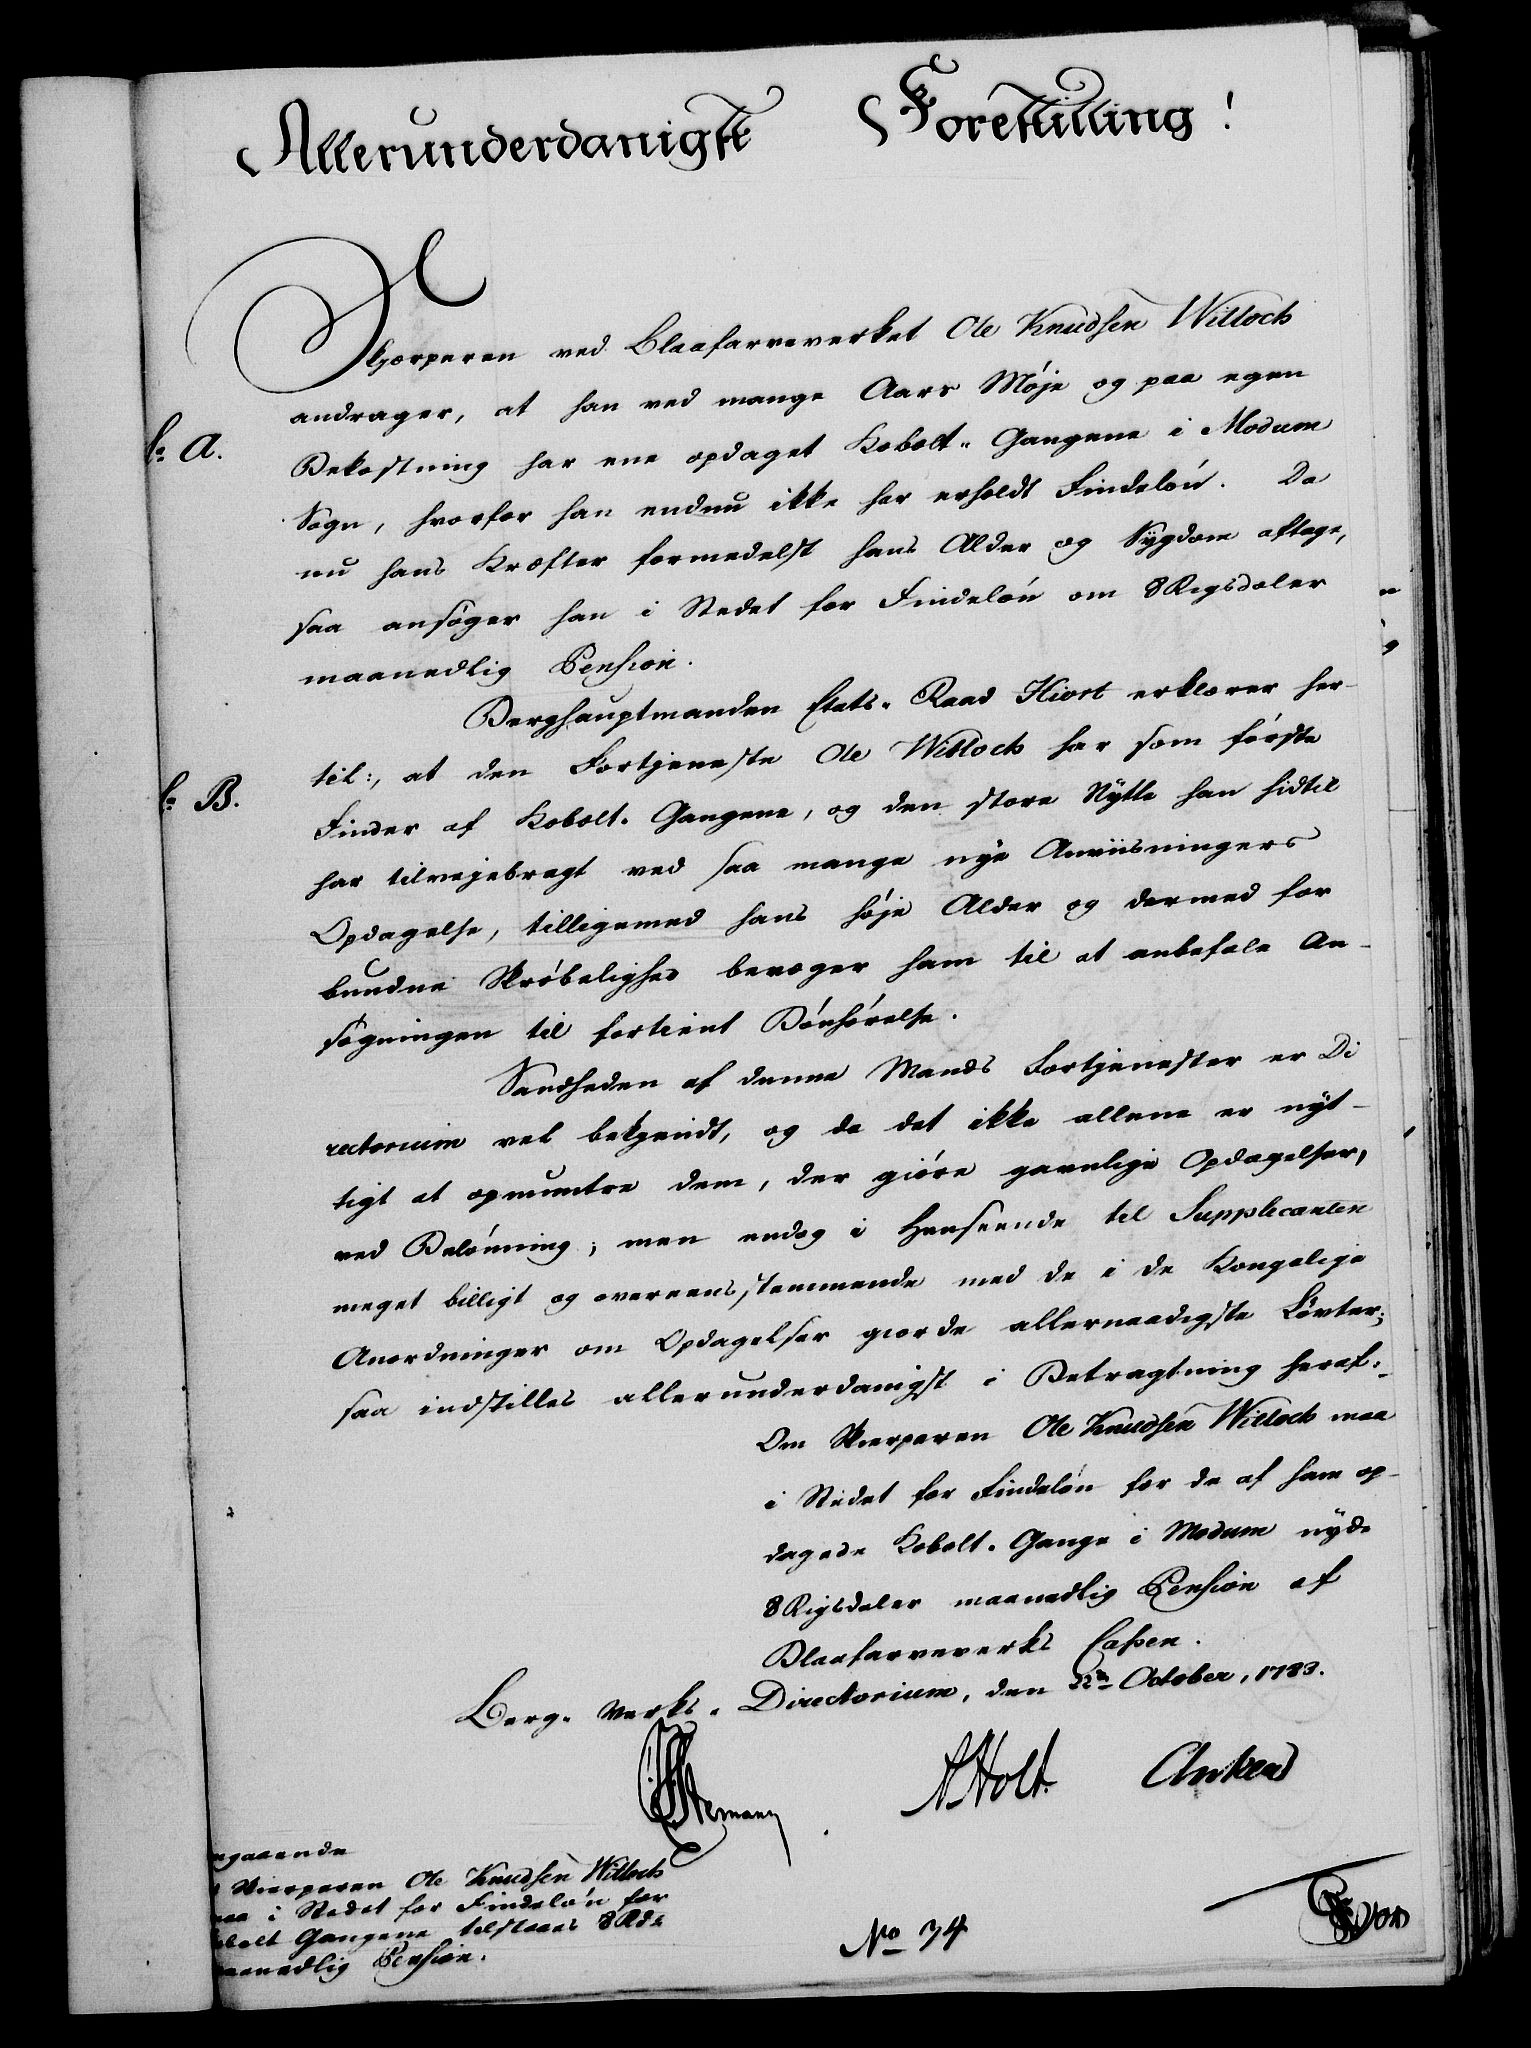 Allerunderdanigste Forestilling!
Skjærperen ved Blaafarveverket Ole Knudsen Witloch
andrager, at han ved mange Aars Møje og paa egen
La A.
Bekostning har ene opdaget Kobolt-Gangene i Modum
Sogn, hvorfor han endnu ikke har erholdt Findeløn. Da
nu hans Kræfter formedelst hans Alder og Sygdom aftage,
saa ansøger han i Stedet for Findeløn om 8 Rigsdaler
maanedlig Pension.
Berghauptmanden Etats-Raad Hiort erklærer her-
til:, at den Fortjeneste Ole Witloch har som første
La B.
Finder af Kobolt-Gangene, og den store Nytte han hidtil
har tilvejebragt ved saa mange nye Anviisningers
Opdagelse, tilligemed hans høje Alder og dermed for
bundne Skrøbelighed bevæger ham til at anbefale An-
søgningen til fortient Bønhørelse.
Sandheden af denne Mands Fortjenester er Di
rectorium vel bekjendt, og da det ikke allene er nyt-
tigt at opmuntre dem, der giøre gavnlige Opdagelser,
ved Belønning; men endog i Henseende til Supplicanten
meget billigt og overeensstemmende med de i de Kongelige
Anordninger om Opdagelser giorde allernaadigste Løvter;
saa indstilles allerunderdanigst i Betragtning heraf:
Om Skierperen Ole Knudsen Witloch maa
i Stedet for Findeløn for de af ham op-
dagede Kobolt-Gange i Modum nyde
8 Rigsdaler maanedlig Pension af
Blaafarveverks Cassen.
Berg-Verks-Directorium, den 22de October, 1783.
Stemann
AHolt.
Anker
ngaaende
Skierperen Ole Knudsen Witloch
maa i Stedet for Findeløn for
obolt Gangene tilstaaes 8 Rdr
aanedlig Pension.
No 34